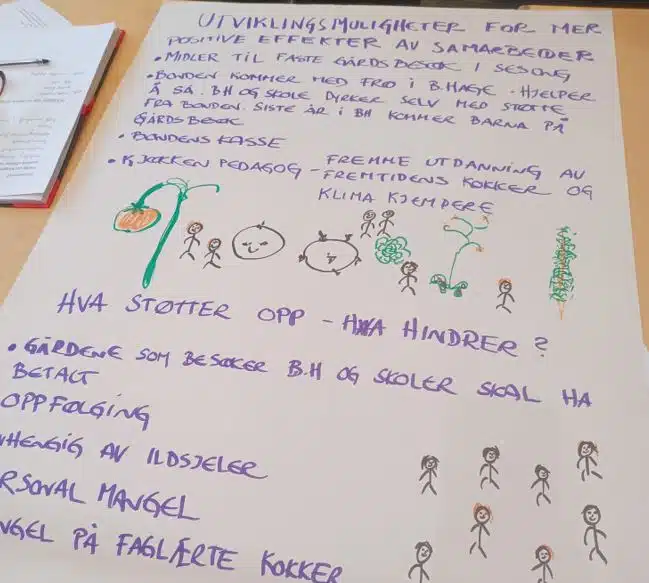 UTVIKLINGSMULIGHETER FOR MER
POSITIVE EFFEKTER AV SAMARBEIDER
• MIDLER TIL FASTE GÅRDS BESØK I SESONG
• BONDEN KOMMER MED FRØ I B.HAGE. HJELPER
Å SÅ. BH OG SKOLE DYRKER SELV MED STØTTE
FRA BONDEN. SISTE ÅR I BH KOMMER BARNA PÅ
GÅRDS BESØK
• BONDENS KASSE
• KJØKKEN PEDAGOG – FREMME UTDANNING AV
FREMTIDENS KOKKER OG
KLIMA KJEMPERE
HVA STØTTER OPP – HVA HINDRER?
• GÅRDENE SOM BESØKER B.H OG SKOLER SKAL HA
BETALT
OPPFØLGING
HENGIG AV ILDSJELER
RSONAL MANGEL
NGEL PÅ FAGLÆRTE KOKKER